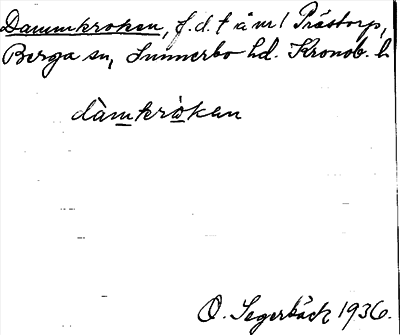 Dammkroken, f.d. t å m/ Prästorp,
Berga sn, Sunnerbo hd. Kronob. l.
dàmkròkan
O. Segerbäck 1936.